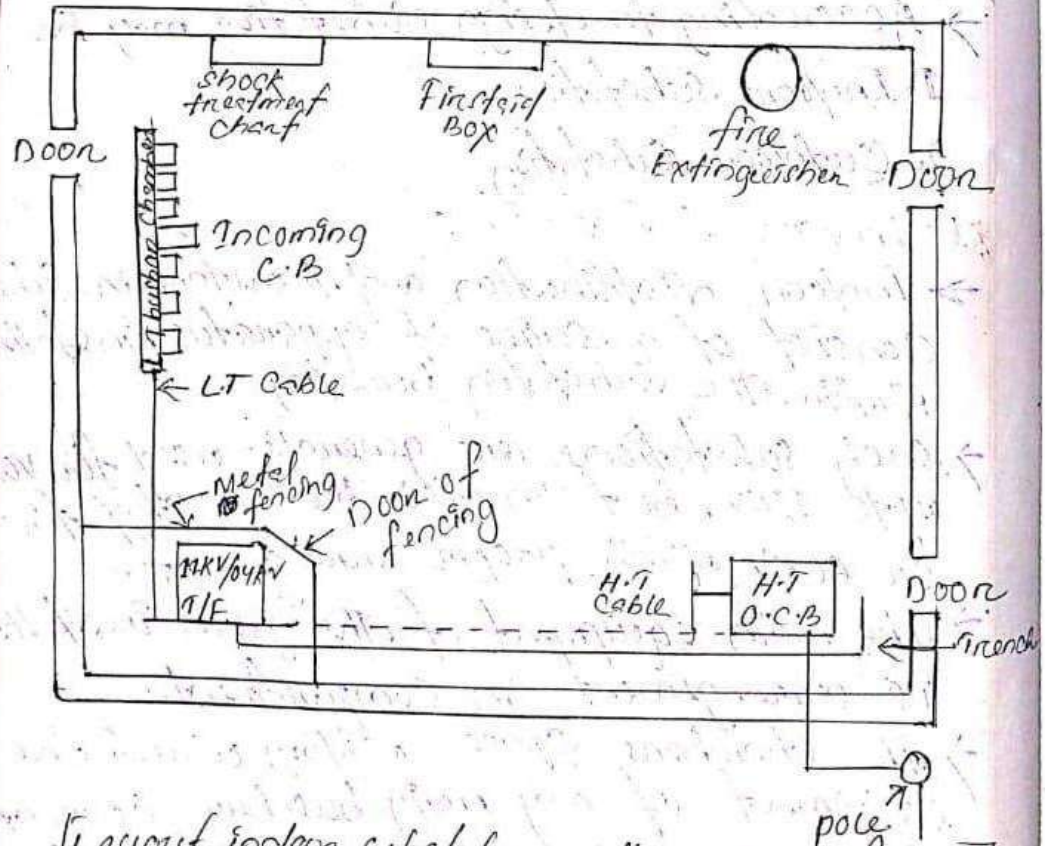 Shock
treatment
Chart
Firstaid
Box
fire
Extinguisher
Door
Door
Incoming
C.B
L.T Cable
Metal
fencing
Door of
fencing
11KV/04KV
T/F
H.T
Cable
H.T
O.C.B
Door
Trench
pole
Layout indoor